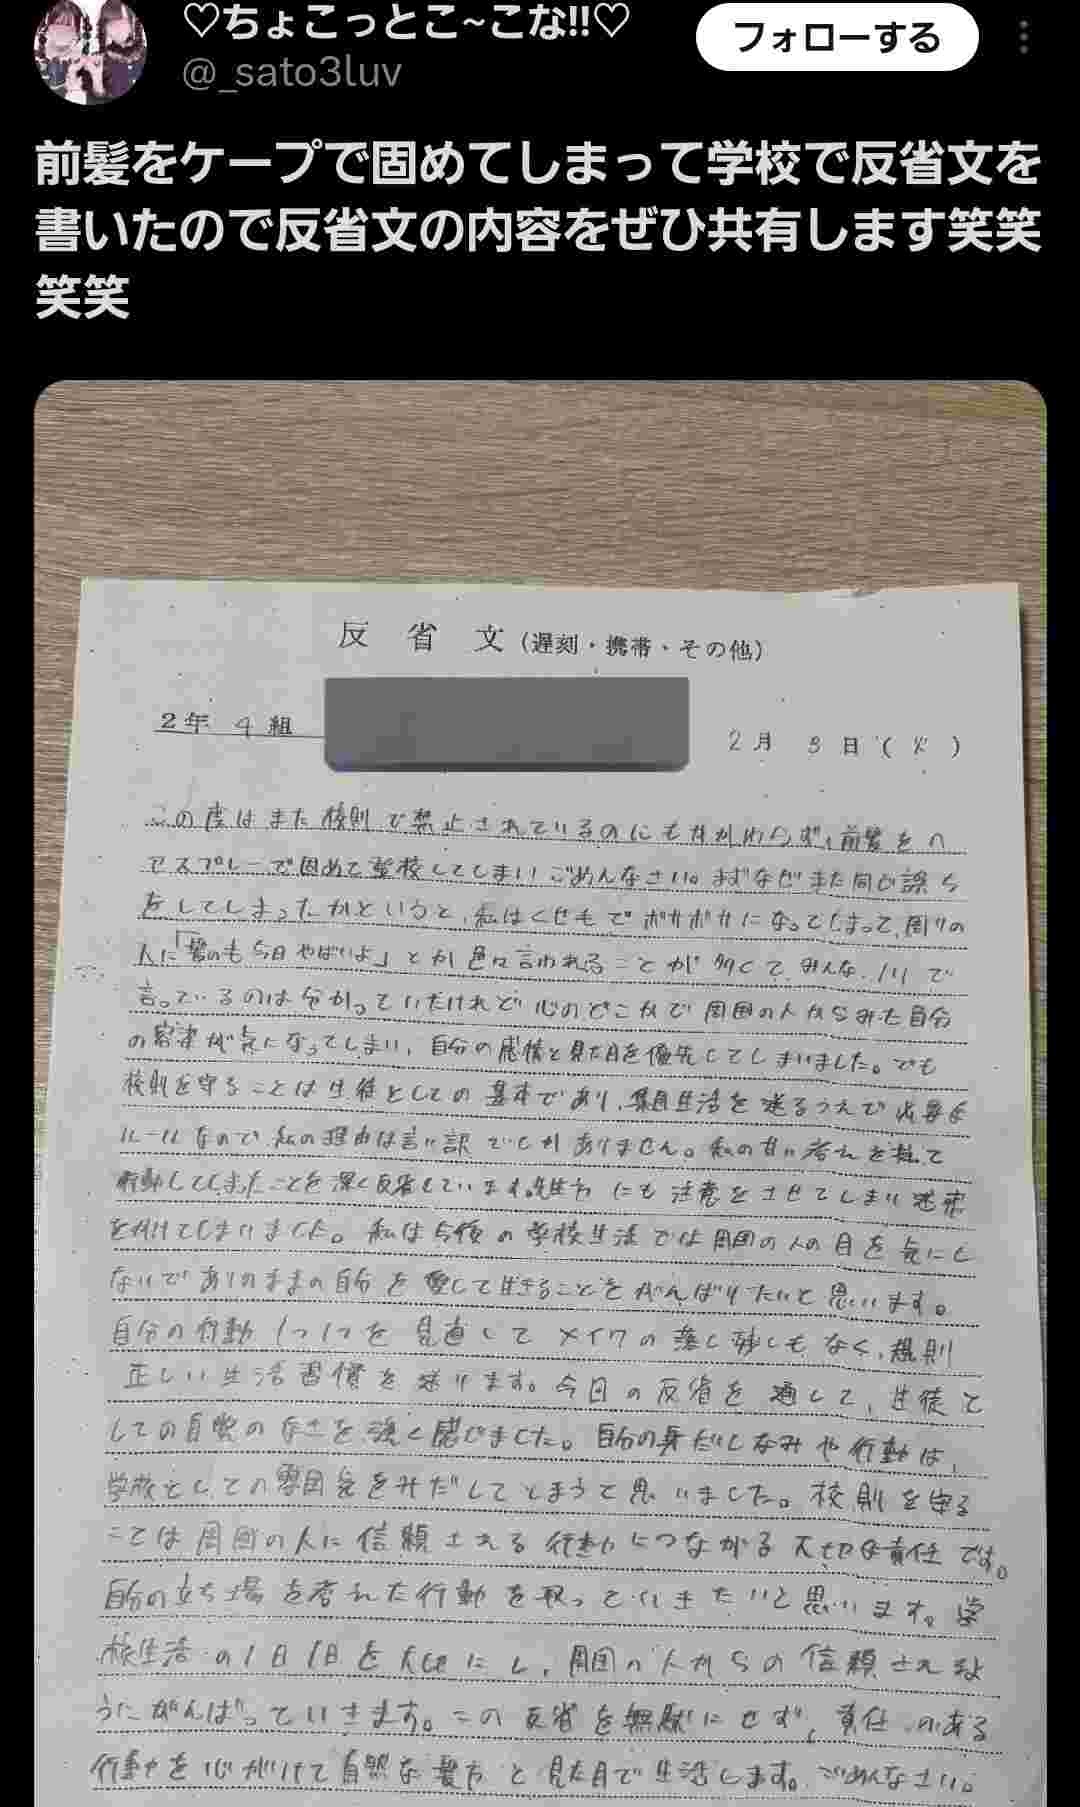 ♡ちょこっとこ~こな!!♡
@_sato3luv
フォローする
前髪をケープで固めてしまって学校で反省文を
書いたので反省文の内容をぜひ共有します笑笑
笑笑
反省文（遅刻・携帯・その他）
2年 4 組
2月 3日（火）
この度はまた校則で禁止されているのにもかかわらず、前髪をヘ
アスプレーで固めて登校してしまいごめんなさい。まずなぜまた同じ誤ち
をしてしまったかというと、私はくせもでボサボサになってしまって、周りの
人に「髪のも今日やばいよ」とか色々言われることが多くて、みんなノリで
言っているのは分かっていたけれど心のどこかで周囲の人からみた自分
の容姿が気になってしまい、自分の感情と見た目を優先してしまいました。でも
校則を守ることは生徒としての基本であり、集団生活を送るうえで必要な
ルールなので、私の理由は言い訳でしかありません。私の甘い考えを
行動してしまったことを深く反省しています。先生方にも注意をさせてしまい迷惑
をかけてしまいました。私は今後の学校生活では周囲の人の目を気にし
ないでありのままの自分を愛して生きることをがんばりたいと思います。
自分の行動1つ1つを見直してメイクの落し残しもなく、規則
正しい生活習慣を送ります。今日の反省を通して、生徒と
しての自覚のなさを強く感じました。自分の身だしなみや行動は、
学校としての雰囲気をみだしてしまうと思いました。校則を守る
ことは周囲の人に信頼される行動につながる大切な責任です。
自分の立ち場を考えた行動を取っていきたいと思います。学
校生活の1日1日を大切にし、周囲の人からの信頼されるよ
うにがんばっていきます。この反省を無駄にせず、責任のある
行動を心がけて自然な髪方と見た目で生活します。ごめんなさい。